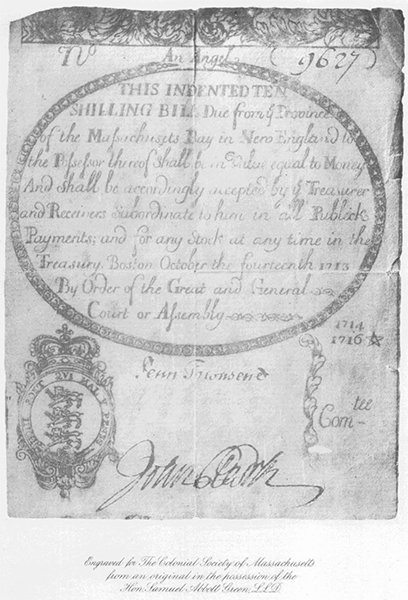 No An Angel (9627)
THIS INDENTED TEN
SHILLING BILL Due from ye Province
of the Massachusets Bay in New England to
the Possessor thereof shall be in value equal to Money
And shall be accordingly accepted by ye Treasurer
and Receivers Subordinate to him in all Publick
Payments; and for any Stock at any time in the
Treasury. Boston October the fourteenth 1713
By Order of the Great and General
Court or Assembly
1714
1716
Penn Townsend
Com tee
Engraved for The Colonial Society of Massachusetts
from an original in the possession of the
Hon. Samuel Abbott Green, LL.D.